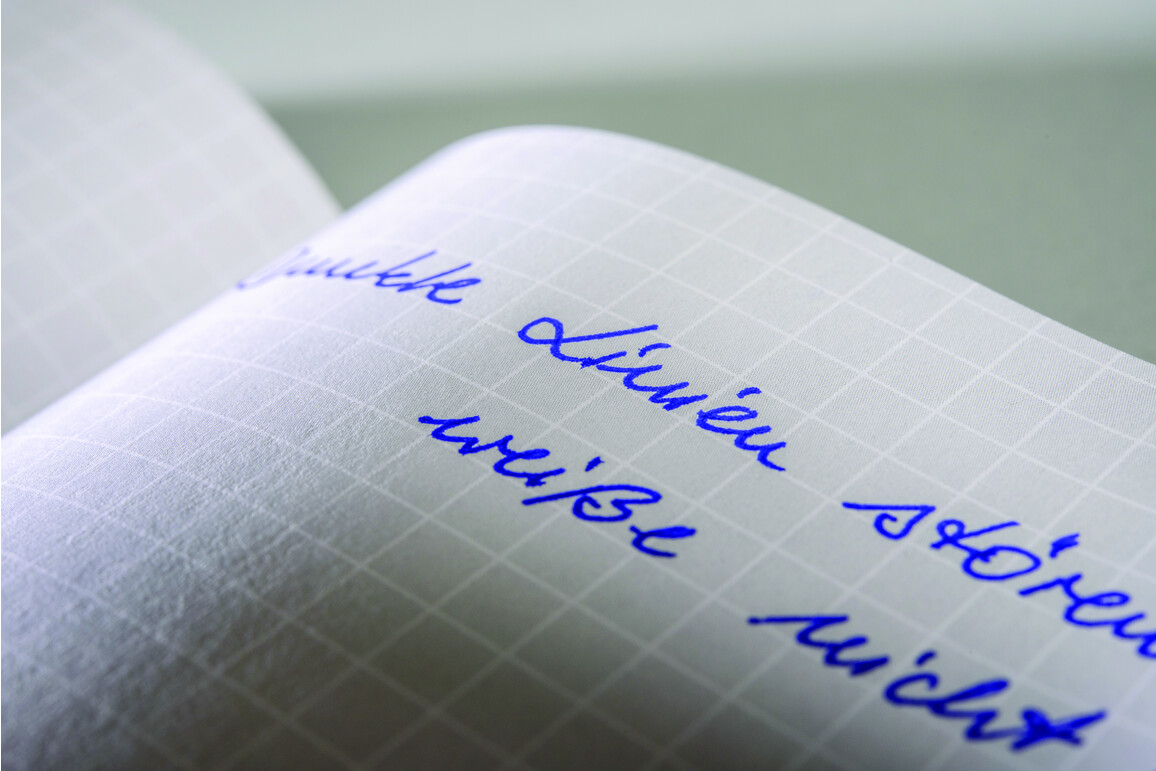 dunkle Linien stören
weiße nicht